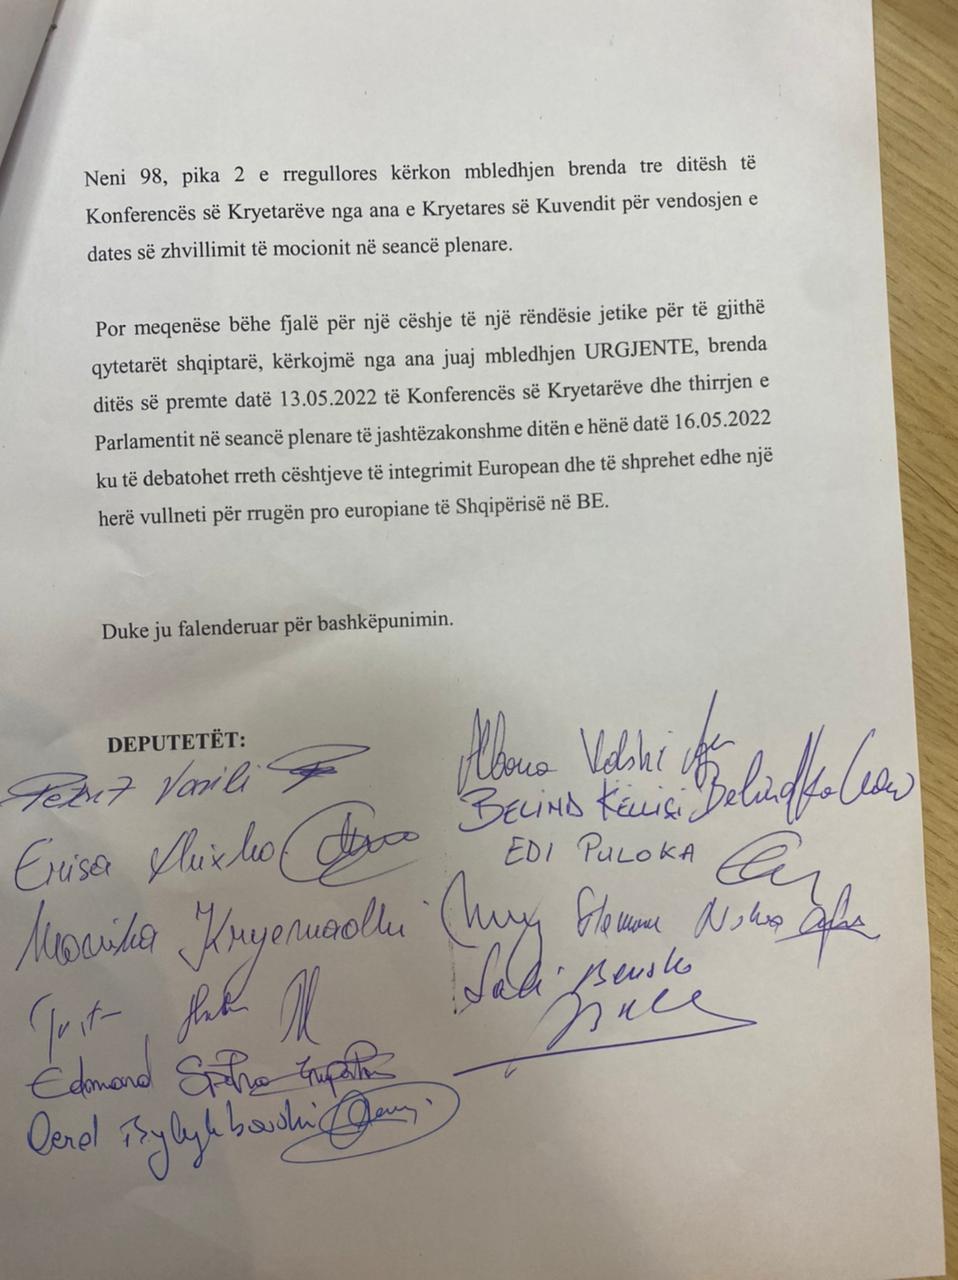 Neni 98, pika 2 e rregullores kërkon mbledhjen brenda tre ditësh të
Konferencës së Kryetarëve nga ana e Kryetares së Kuvendit për vendosjen e
dates së zhvillimit të mocionit në seancë plenare.
Por meqenëse bëhe fjalë për një cëshje të një rëndësie jetike për të gjithë
qytetarët shqiptarë, kërkojmë nga ana juaj mbledhjen URGJENTE, brenda
ditës së premte datë 13.05.2022 të Konferencës së Kryetarëve dhe thirrjen e
Parlamentit në seancë plenare të jashtëzakonshme ditën e hënë datë 16.05.2022
ku të debatohet rreth cështjeve të integrimit European dhe të shprehet edhe një
herë vullneti për rrugën pro europiane të Shqipërisë në BE.
Duke ju falenderuar për bashkëpunimin.
DEPUTETËT:
Petrit Vasili
Erisa Xhixho
Monika Kryemadhi
Edmond
Qerel Bylykbashi
Albana Vokshi
BELIND KËLLIÇI
EDI PULOKA